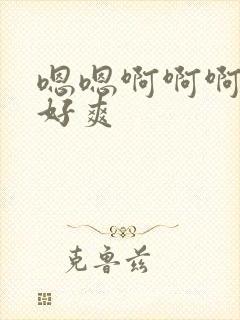 嗯嗯啊啊啊
好爽
克鲁兹